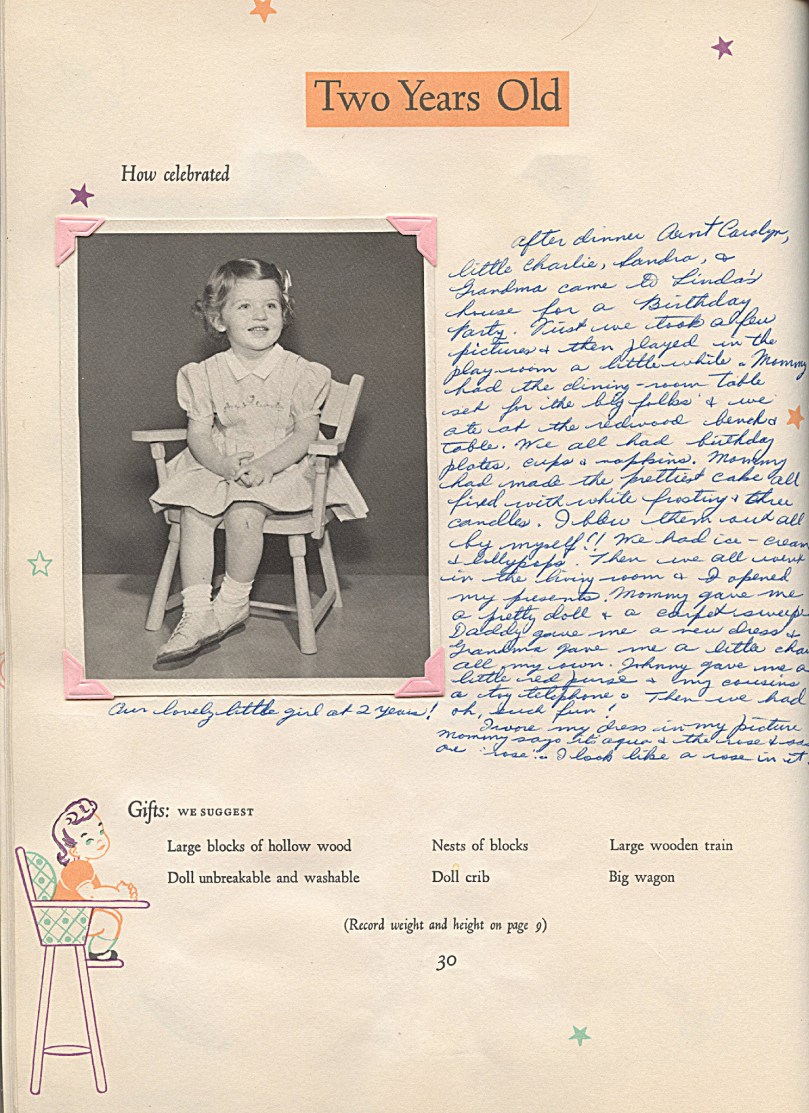 Two Years Old
How celebrated
After dinner Aunt Carolyn,
little Charlie, Sandra, &
Grandma came to Linda's
house for a Birthday
Party. First we took a few
pictures & then played in the
play-room a little while. Mommy
had the dining-room table
set for the big folks & we
ate at the redwood bench &
table. We all had birthday
plates, cups & napkins. Mommy
had made the prettiest cake all
fixed with white frosting & three
candles. I blew them out all
by myself!! We had ice-cream
& lollypops. Then we all went
in the living-room & I opened
my presents. Mommy gave me
a pretty doll & a carpet sweep
Daddy gave me a new dress &
Grandma gave me a little chai
all my own. Johnny gave me a
little red purse & my cousins
a toy telephone. Then we had
oh, such fun!
Our lovely little girl at 2 years!
I wore my dress in my picture
Mommy says its aqua & the rose &
are "rose". I look like a rose in it.
Gifts: WE SUGGEST
Large blocks of hollow wood Nests of blocks Large wooden train
Doll unbreakable and washable Doll crib Big wagon
(Record weight and height on page 9)
30